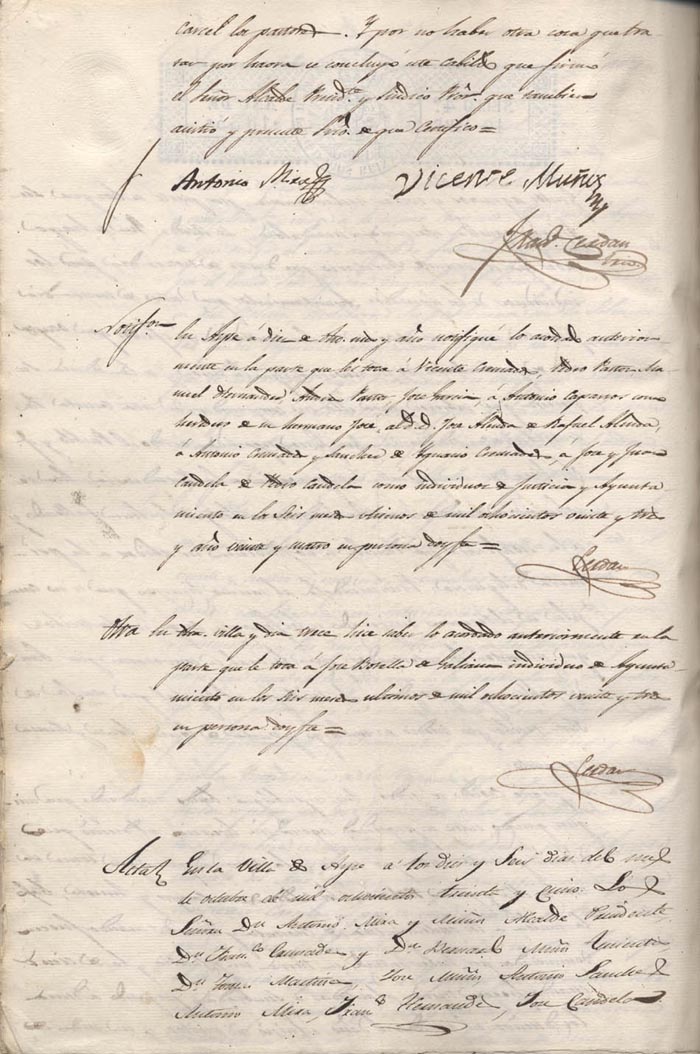 carcel los pastores. Y por no haber otra cosa que tra
tar por haora se concluyó este Cabildo que firmó
el Señor Alcalde Presid.te y Sindico Pror. que tambien
asistió y presente Srio. de que Certifico =
Antonio Mira Vicente Muñoz
Fran.co Cerdan
Srio
Notif.on En Aspe á diez de dho. mes y año notifiqué lo acordado anterior
mente en la parte que les toca á Vicente Cremades, Pedro Pastor Ma
nuel Hernandez, Andres Pastor José Garcia, á Antonio Caparros como
heredero de su hermano José, al D.D. José Almda de Rafael Almda,
á Antonio Cremades y Sanchez de Ygnacio Cremades, á José y Juan
Candela de Pedro Candela como individuos de Justicia y Ayunta
miento en los Seis meses ultimos de mil ochocientos veinte y tres
y año veinte y cuatro en persona doy fe =
Cerdan
Otra En dha. villa y dia trece hice saber lo acordado anteriormente en la
parte que le toca á José Botella de Galiana individuo de Ayunta
miento en los Seis meses ultimos de mil ochocientos veinte y tres
en persona doy fe =
Cerdan
Acta En la Villa de Aspe á los diez y Seis dias del mes
de octubre de mil ochocientos treinta y Cinco Los
Señores Dn. Antonio Mira y Miñon Alcalde Presidente
Dn. Fran.co Cremades y Dn. Miñon
Dn. Martinez, José Miñon Antonio Sanchez
Antonio Mira, Fran.co Hernandez, José Candela